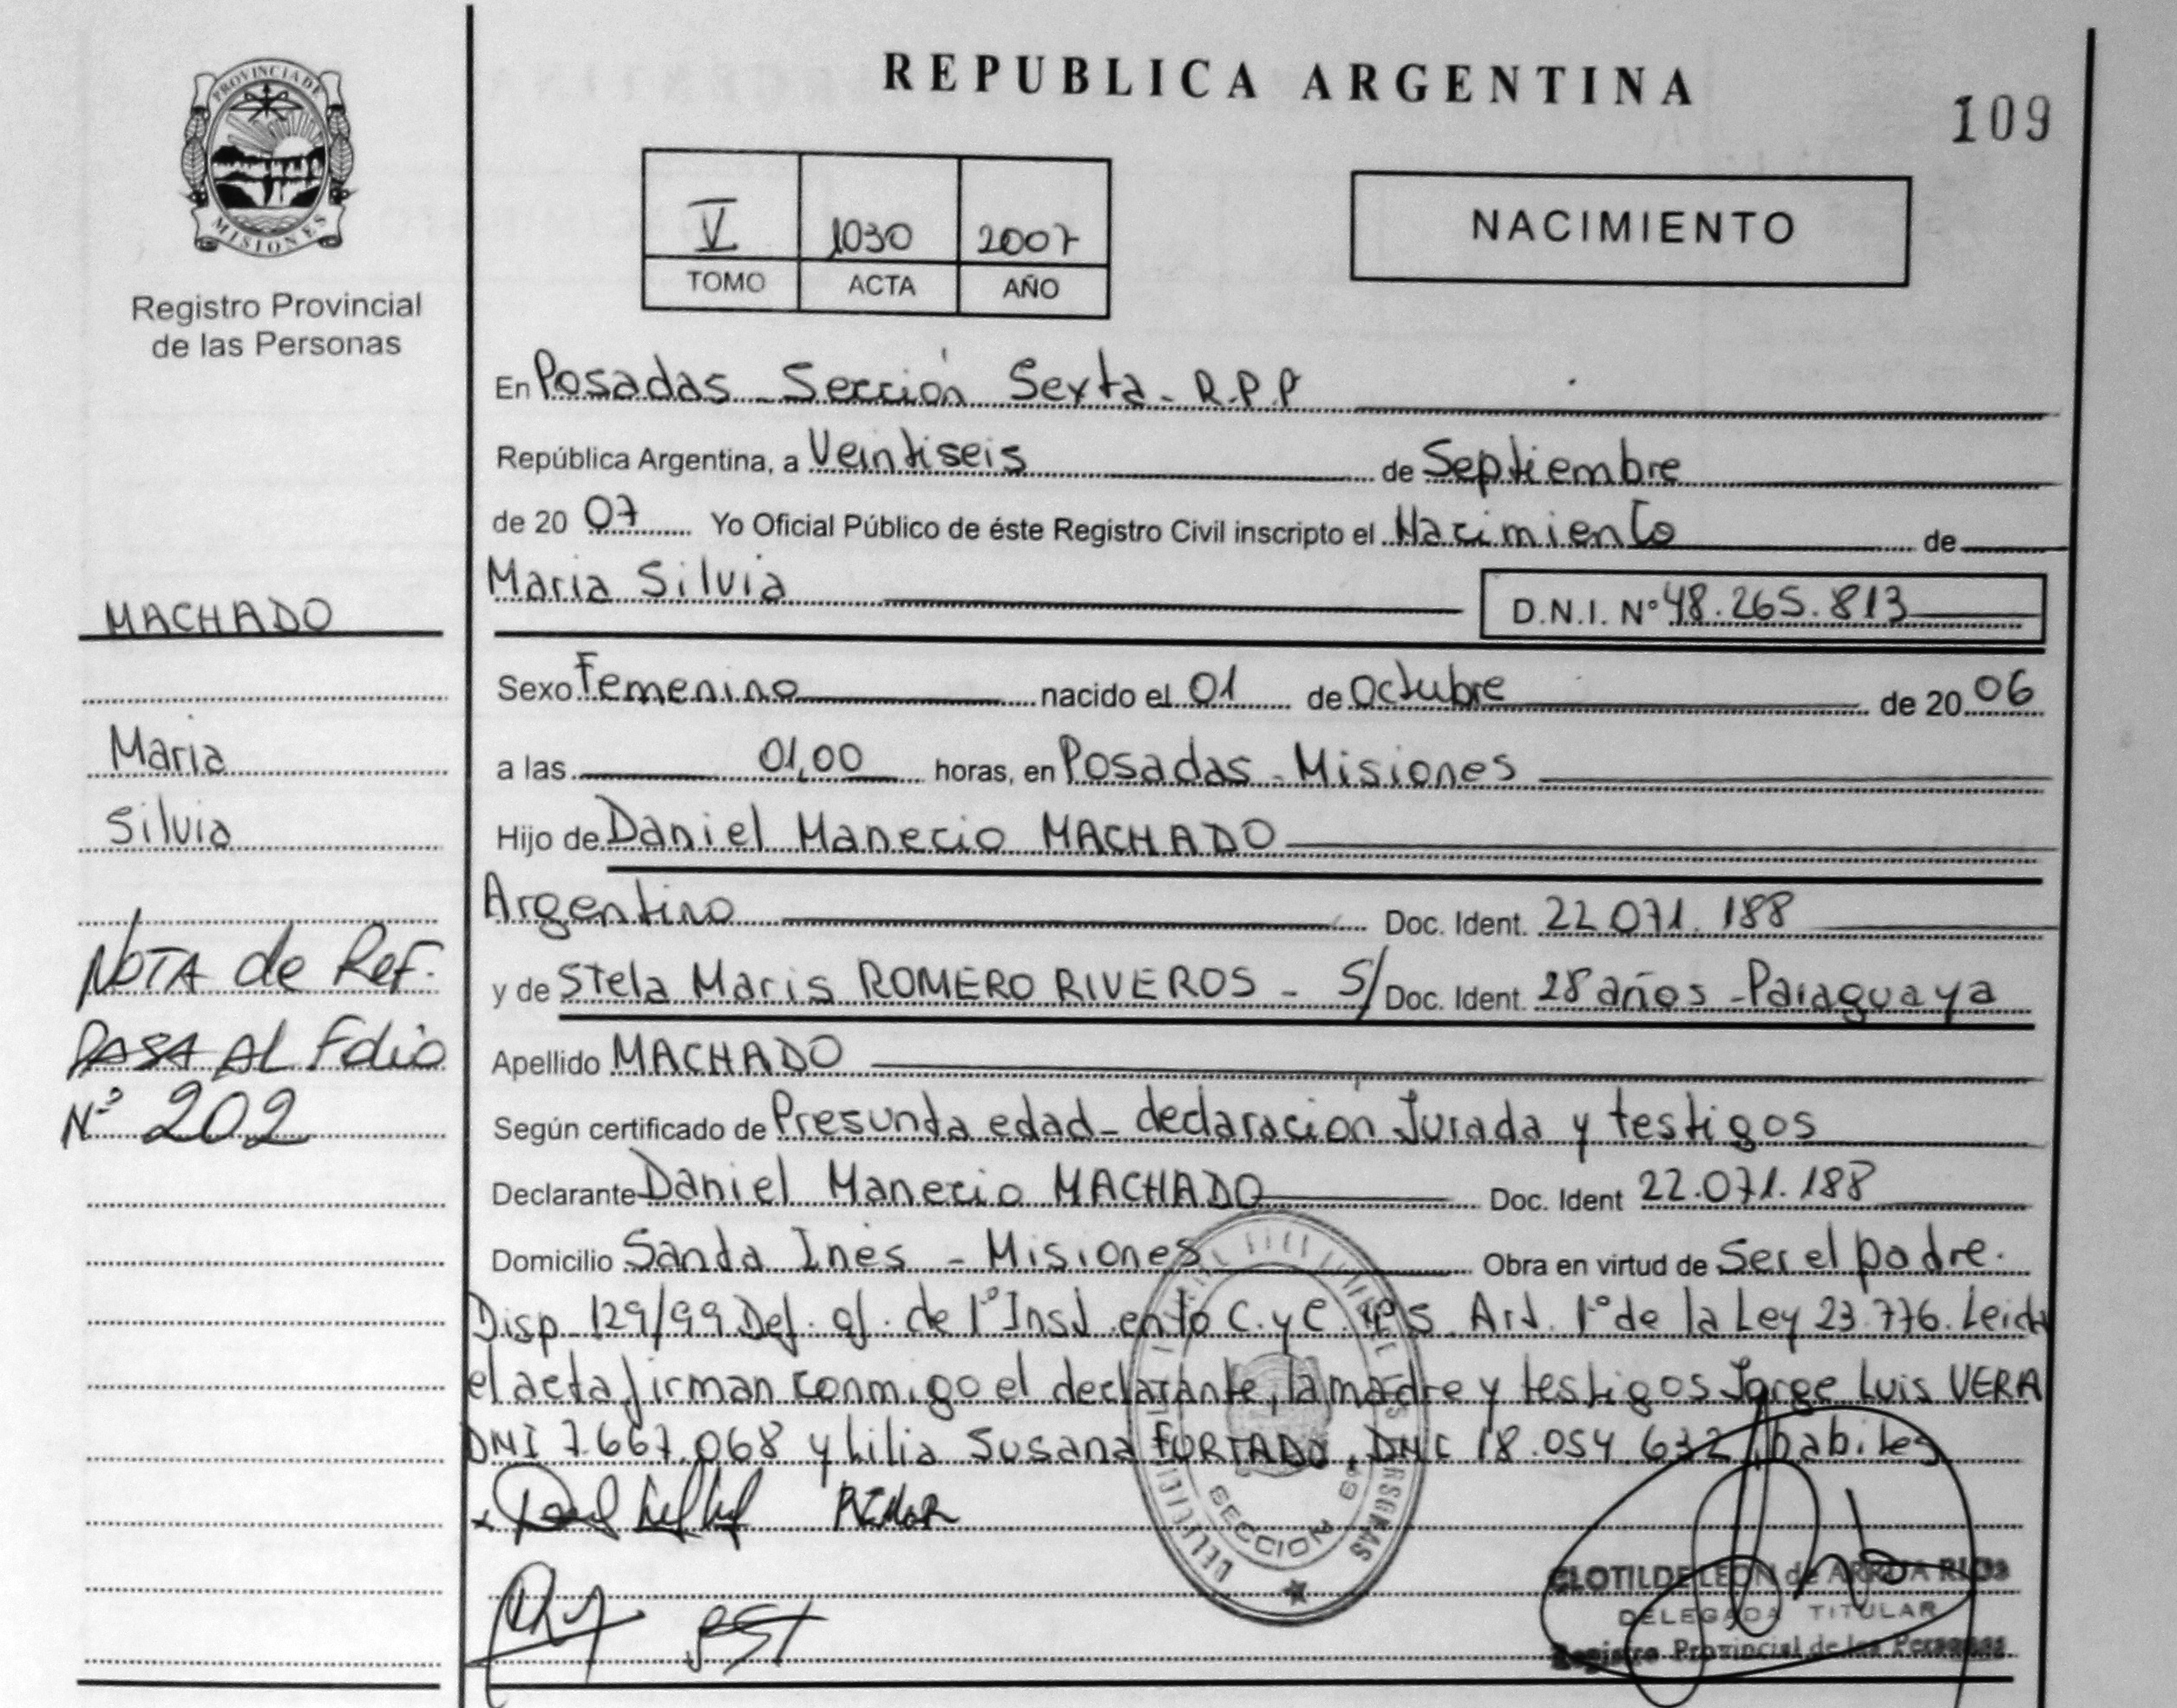 PROVINCIA DE
MISIONES
Registro Provincial
de las Personas
REPUBLICA ARGENTINA
109
V 1030 2007
TOMO ACTA AÑO
NACIMIENTO
En Posadas - Sección Sexta - R.P.P
República Argentina, a Veintiseis de Septiembre
de 20 07 Yo Oficial Público de éste Registro Civil inscripto el Nacimiento de
Maria Silvia D.N.I. N° 48.265.813
MACHADO
Sexo Femenino nacido el 01 de Octubre de 20 06
Maria
a las 01,00 horas, en Posadas - Misiones
Silvia
Hijo de Daniel Manecio MACHADO
Argentino Doc. Ident. 22 071. 188
NOTA de Ref.
y de Stela Maris ROMERO RIVEROS - S/ Doc. Ident. 28 años - Paraguaya
PASA AL Folio
Apellido MACHADO
N° 202
Según certificado de Presunta edad - declaración Jurada y testigos
Declarante Daniel Manecio MACHADO Doc. Ident 22.071.188
Domicilio Santa Inés - Misiones Obra en virtud de Ser el padre.
Disp. 129/99 Def. of. de 1° Inst en lo C. y C. Art. 1° de la Ley 23.776. Leida
el acta firman conmigo el declarante, la madre y testigos Jorge Luis VERA
DNI 7.667.068 y Lilia Susana FURTADO, DNI 18.054.632, habiles
SECCION
CLOTILDE LEON de ARRUA RIOS
DELEGADA TITULAR
Registro Provincial de las Personas